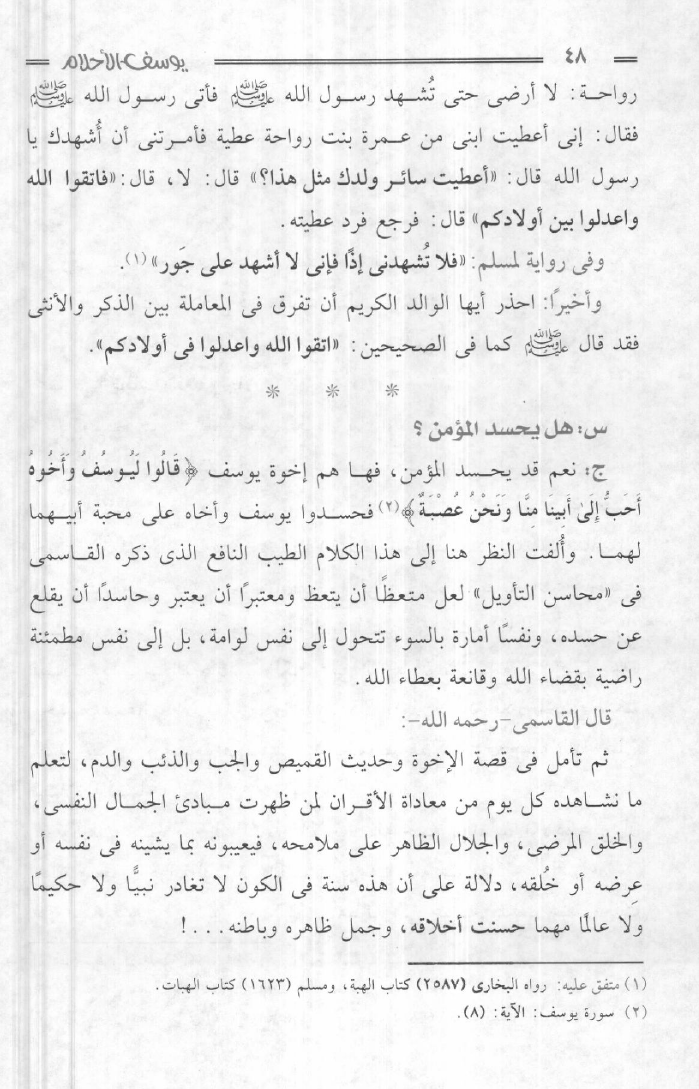 ٤٨ يوسف الأحلام
رواحة: لا أرضى حتى تُشهد رسول الله ﷺ فأتى رسول الله ﷺ
فقال: إنى أعطيت ابنى من عمرة بنت رواحة عطية فأمرتنى أن أُشهدك يا
رسول الله قال: «أعطيت سائر ولدك مثل هذا؟» قال: لا، قال: «فاتقوا الله
واعدلوا بين أولادكم» قال: فرجع فرد عطيته.
وفى رواية لمسلم: «فلا تُشهدنى إذًا فإنى لا أشهد على جَور» (١).
وأخيرًا: احذر أيها الوالد الكريم أن تفرق فى المعاملة بين الذكر والأنثى
فقد قال ﷺ كما فى الصحيحين: «اتقوا الله واعدلوا فى أولادكم».
* * *
س: هل يحسد المؤمن ؟
ج: نعم قد يحسد المؤمن، فها هم إخوة يوسف ﴿ قَالُوا لَيُوسُفُ وَأَخُوهُ
أَحَبُّ إِلَىٰ أَبِينَا مِنَّا وَنَحْنُ عُصْبَةٌ ﴾ (٢) فحسدوا يوسف وأخاه على محبة أبيهما
لهما. وأُلفت النظر هنا إلى هذا الكلام الطيب النافع الذى ذكره القاسمى
فى «محاسن التأويل» لعل متعظًا أن يتعظ ومعتبرًا أن يعتبر وحاسدًا أن يقلع
عن حسده، ونفسًا أمارة بالسوء تتحول إلى نفس لوامة، بل إلى نفس مطمئنة
راضية بقضاء الله وقانعة بعطاء الله.
قال القاسمى -رحمه الله-:
ثم تأمل فى قصة الإخوة وحديث القميص والجب والذئب والدم، لتعلم
ما نشاهده كل يوم من معاداة الأقران لمن ظهرت مبادئ الجمال النفسى،
والخلق المرضى، والجلال الظاهر على ملامحه، فيعيبونه بما يشينه فى نفسه أو
عِرضه أو خُلقه، دلالة على أن هذه سنة فى الكون لا تغادر نبيًّا ولا حكيمًا
ولا عالمًا مهما حسنت أخلاقه، وجمل ظاهره وباطنه...!
(١) متفق عليه: رواه البخارى (٢٥٨٧) كتاب الهبة، ومسلم (١٦٢٣) كتاب الهبات.
(٢) سورة يوسف: الآية: (٨).